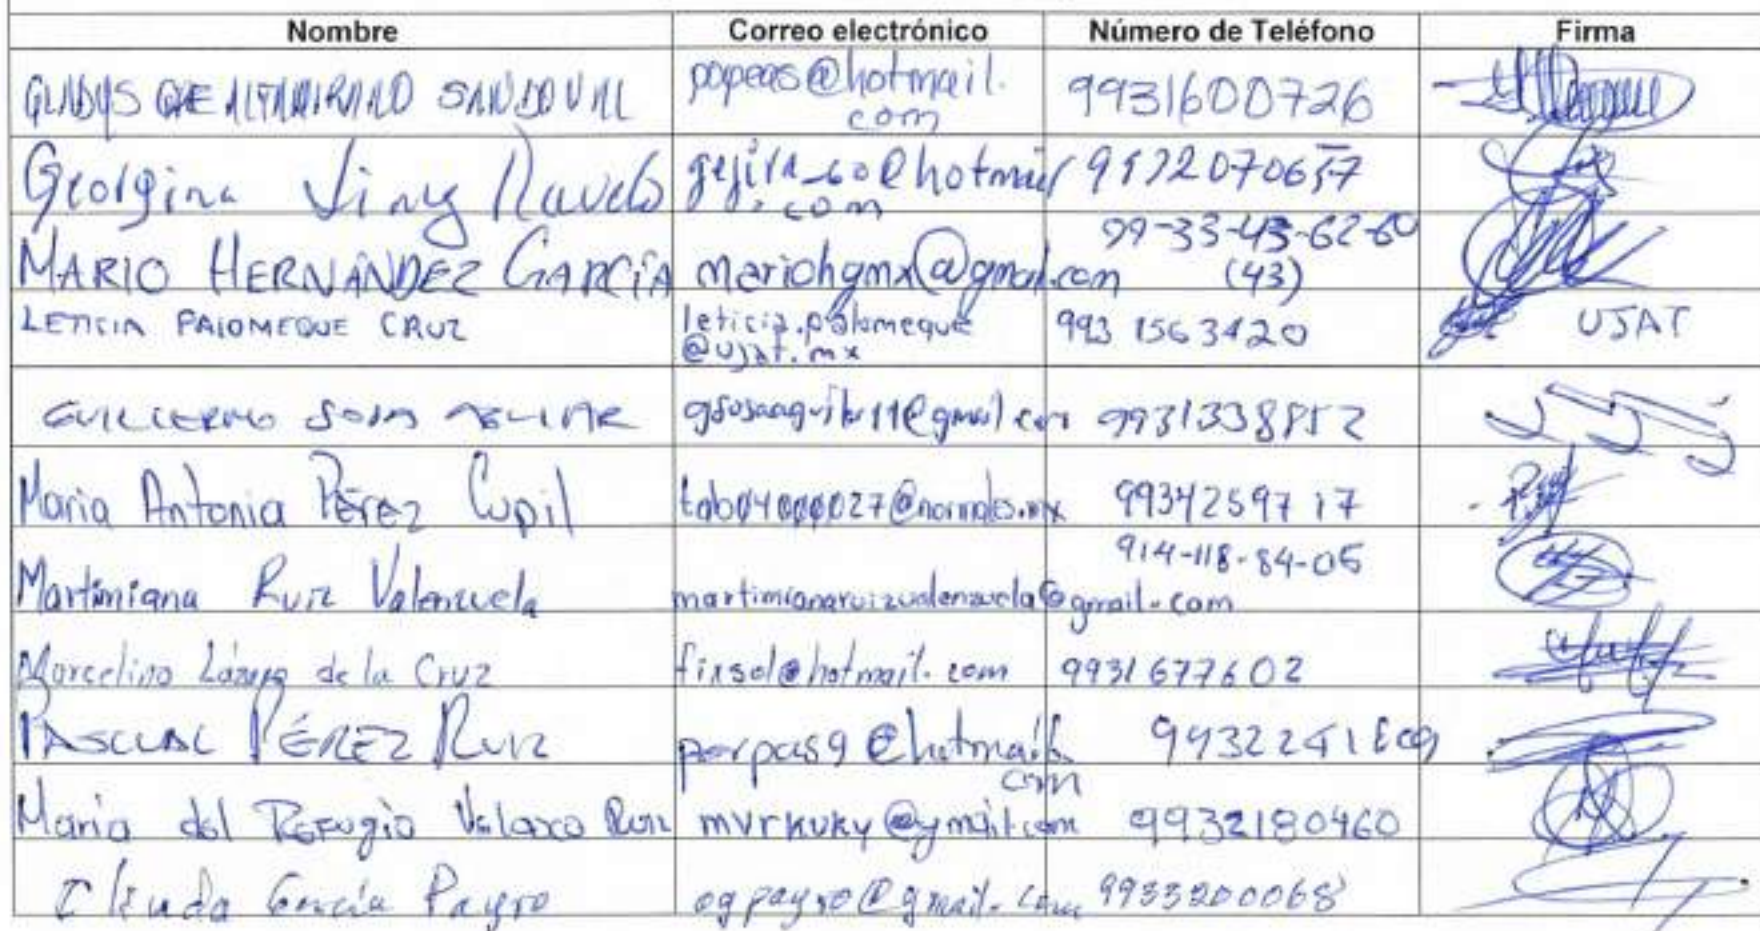 Nombre Correo electrónico Número de Teléfono Firma
GLADYS ALTAMIRANO SANDOVAL popeas@hotmail.com 9931600726
Georgina Jiny Ravelo @hotmail.com
MARIO HERNÁNDEZ GARCÍA mariohgmx@gmail.com 99-33-43-62-60 (43)
LETICIA PALOMEQUE CRUZ leticia.palomeque@ujat.mx 993 1563420 UJAT
GUILLERMO SOSA AGUILAR gsosaaguilar11@gmail.com 9931338852
Maria Antonia Pérez Cupil 9934259717
Martimiana Ruiz Valenzuela martimianaruizvalenzuela@gmail.com 914-118-84-05
Marcelino Lázaro de la Cruz firsol@hotmail.com 9931677602
PASCUAL PÉREZ RUIZ perpas9@hotmail.com
Maria del Refugio Velazco Ruiz mvrkuky@gmail.com 9932180460
García Payro ogpayro@gmail.com 9933200068